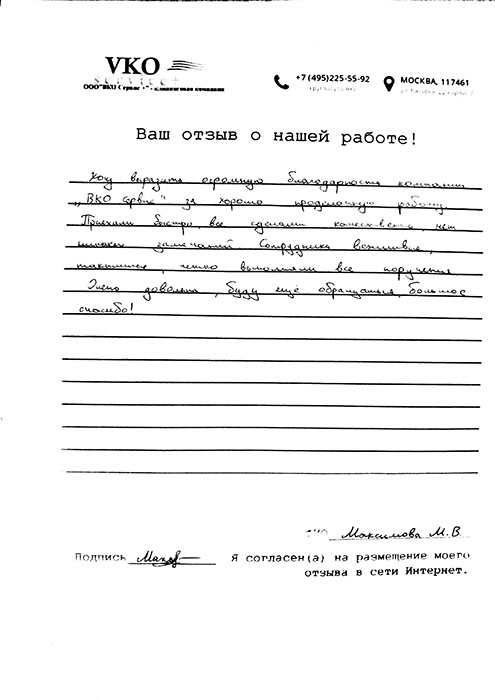 VKO
SERVICE+
ООО"ВКО Сервис+"-клининговая компания
+7 (495)225-55-92
круглосуточно
МОСКВА, 117461
Ваш отзыв о нашей работе!
Хочу выразить огромную благодарность компании
„ВКО Сервис" за хорошо проделанную работу.
Приехали быстро, все сделали качественно, нет
никаких замечаний. Сотрудники вежливые,
тактичные, четко выполняли все поручения
Очень довольна, буду ещё обращаться, большое
спасибо!
Максимова М.В.
Подпись
Я согласен(а) на размещение моего
отзыва в сети Интернет.